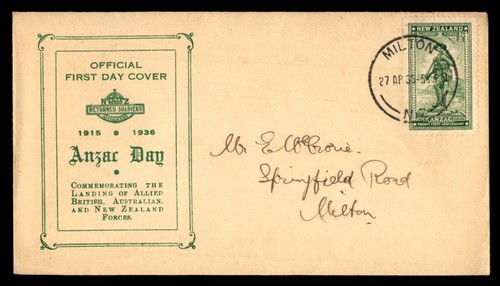 OFFICIAL
FIRST DAY COVER
N Z
RETURNED SOLDIERS
ASSOCIATION
1915 • 1936
Anzac Day
COMMEMORATING THE
LANDING OF ALLIED
BRITISH, AUSTRALIAN,
AND NEW ZEALAND
FORCES.
NEW ZEALAND
MILTON
27 AP 36
N.Z.
ANZAC
Mr E
Springfield Road
Milton